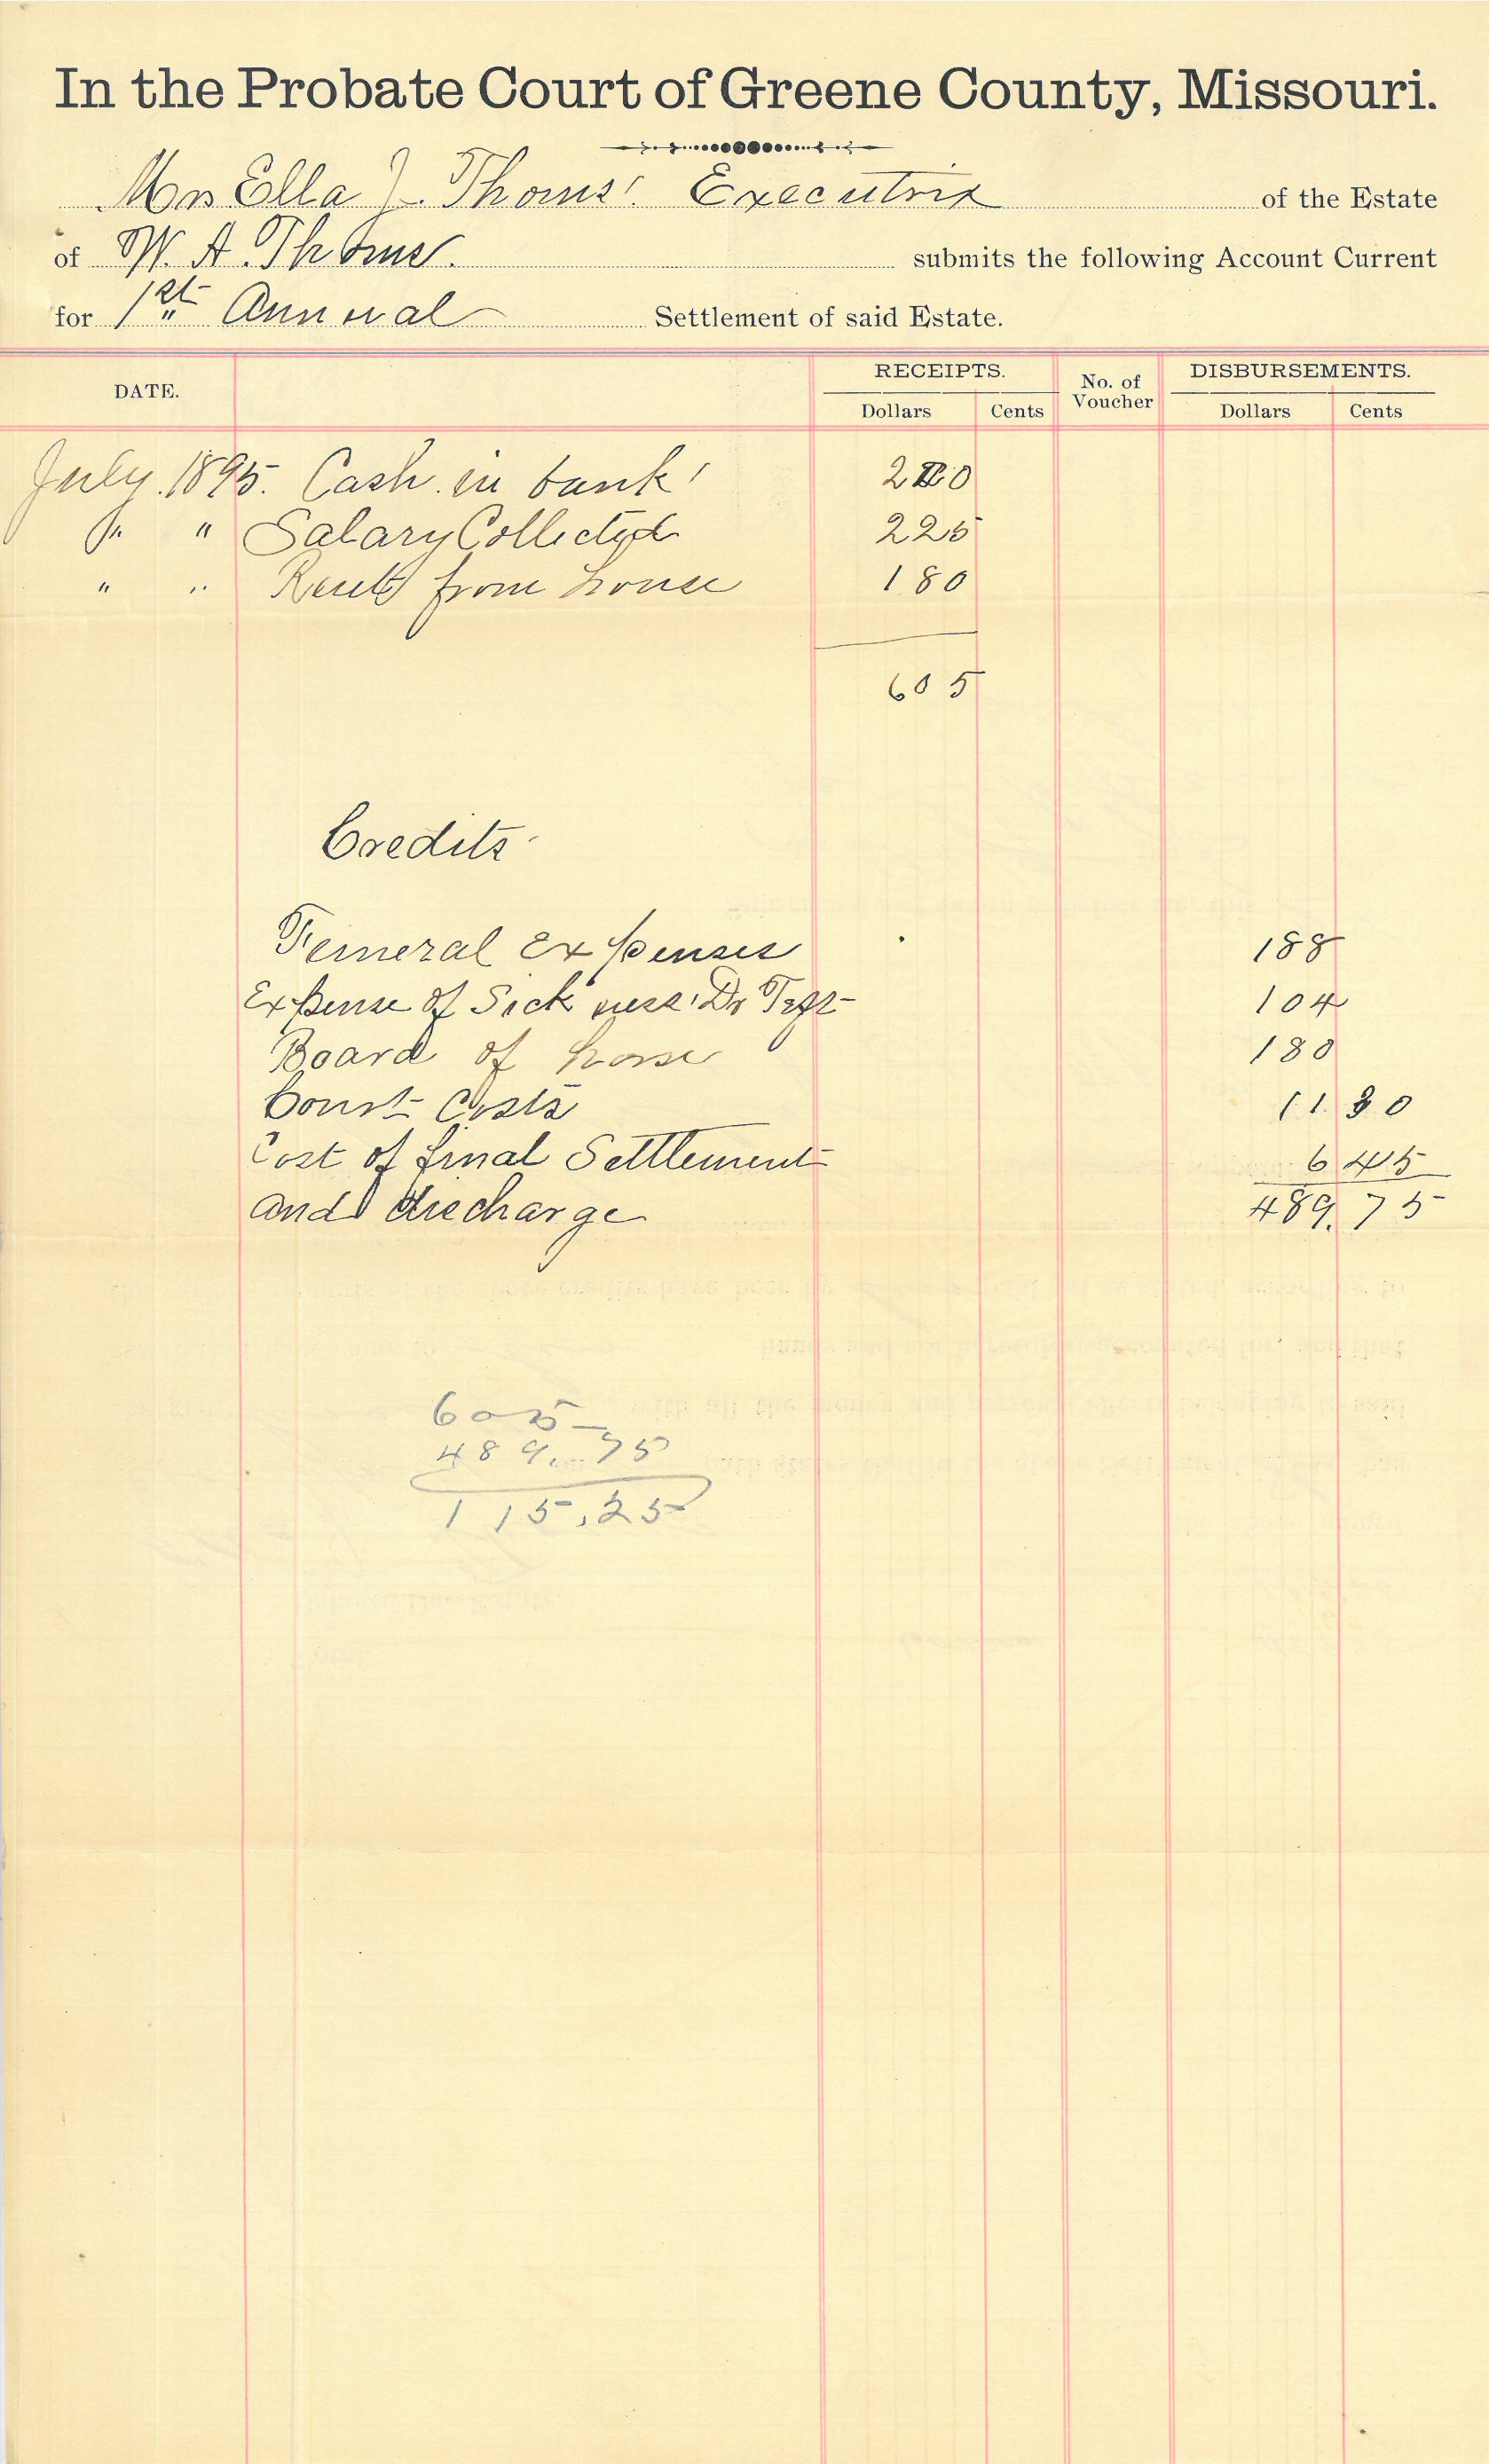 In the Probate Court of Greene County, Missouri.
Mrs Ella J. Thoms' Executrix of the Estate
of W. A. Thoms. submits the following Account Current
for 1st Annual Settlement of said Estate.
DATE. RECEIPTS. No. of Voucher DISBURSEMENTS.
Dollars Cents Dollars Cents
July 1895. Cash in bank 200
" " Salary Collected 225
" " Rent from house 180
605
Credits
Funeral Expenses 188
Expense of Sickness Dr 104
Board of horse 180
Court Costs 11 30
Cost of final Settlement 6 45
and discharge 489.75
605
489.75
115.25